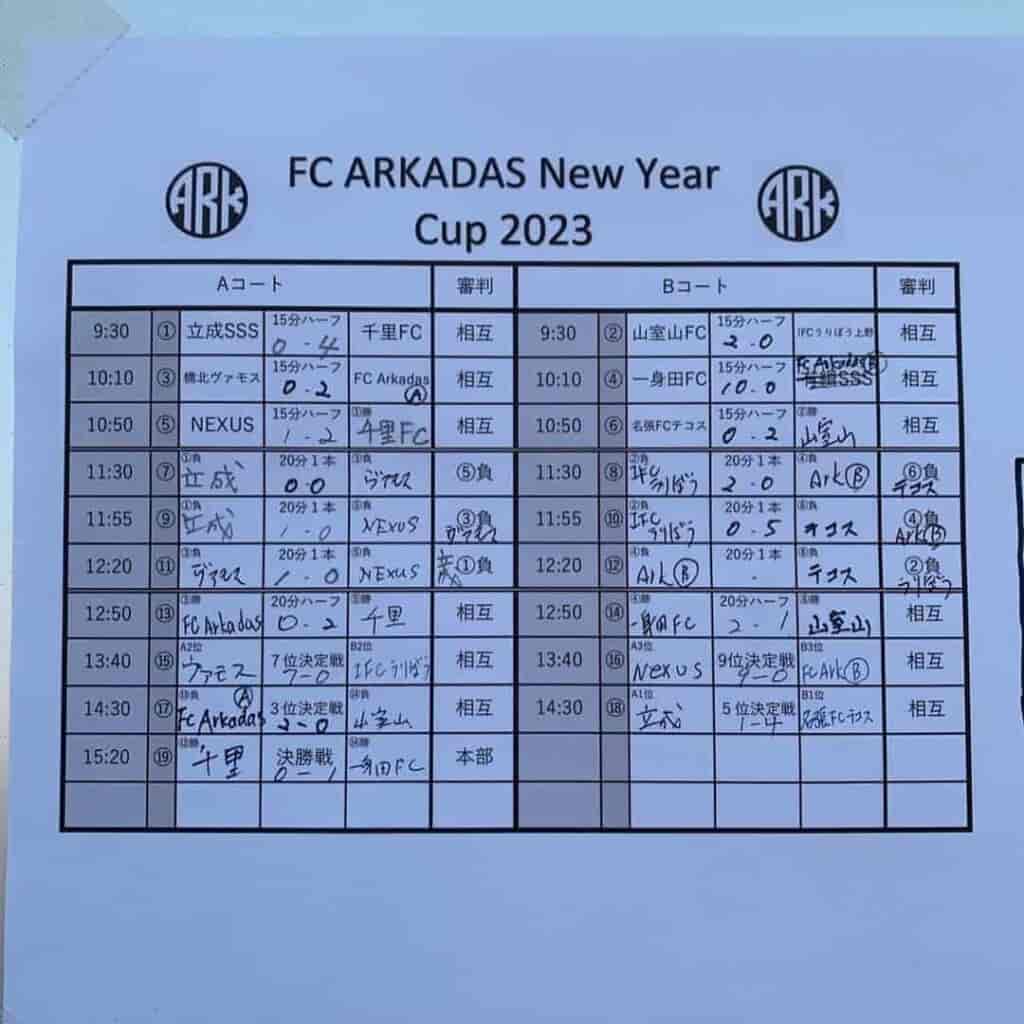 ARK FC ARKADAS New Year ARK
Cup 2023
Aコート 審判 Bコート 審判
9:30 ① 立成SSS 15分ハーフ 0-4 千里FC 相互 9:30 ② 山室山FC 15分ハーフ 2-0 IFCうりぼう上野 相互
10:10 ③ 橋北ヴァモス 15分ハーフ 0-2 FC Arkadas Ⓐ 相互 10:10 ④ 一身田FC 15分ハーフ 10-0 FC Arkadas Ⓑ 相互
10:50 ⑤ NEXUS 15分ハーフ 1-2 ①勝 千里FC 相互 10:50 ⑥ 名張FCテコス 15分ハーフ 0-2 ②勝 山室山 相互
11:30 ⑦ ①負 立成 20分1本 0-0 ③負 ヴァモス ⑤負 11:30 ⑧ ②負 IFCうりぼう 20分1本 2-0 ④負 Ark Ⓑ ⑥負 テコス
11:55 ⑨ ①負 立成 20分1本 1-0 ⑤負 NEXUS ③負 ヴァモス 11:55 ⑩ ②負 IFCうりぼう 20分1本 0-5 ⑥負 テコス ④負 Ark Ⓑ
12:20 ⑪ ③負 ヴァモス 20分1本 1-0 ⑤負 NEXUS ①負 12:20 ⑫ ④負 Ark Ⓑ 20分1本 - ⑥負 テコス ②負 うりぼう
12:50 ⑬ ③勝 FC Arkadas 20分ハーフ 0-2 ⑤勝 千里 相互 12:50 ⑭ ④勝 一身田FC 20分ハーフ 2-1 ⑥勝 山室山 相互
13:40 ⑮ A2位 ヴァモス 7位決定戦 7-0 B2位 IFCうりぼう 相互 13:40 ⑯ A3位 Nexus 9位決定戦 9-0 B3位 FC Ark Ⓑ 相互
14:30 ⑰ ⑬負 FC Arkadas Ⓐ 3位決定戦 2-0 ⑭負 山室山 相互 14:30 ⑱ A1位 立成 5位決定戦 1-4 B1位 名張FCテコス 相互
15:20 ⑲ ⑬勝 千里 決勝戦 0-1 ⑭勝 一身田FC 本部